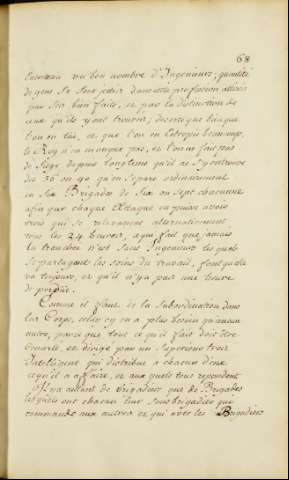 68
un bon nombre d'Ingenieurs, quantité
de gens se sont jettés dans cette profession attirés
par ses bien faits, et par la distinction de
ceux qu'ils y ont trouvés; desorte que bienque
l'on en tue, et que l'on en Estropie beaucoup,
le Roy n'en manque pas, et l'on ne fait pas
de Siege depuis longtems qu'il ne s'y entrouve
des 36 ou 40, qu'on Separe ordinairement
en Six Brigades de Six ou sept chacunne
afin que chaque Attaque en puisse avoir
trois qui se relevassent alternativement
tous les 24 heures, ce qui fait que jamais
la tranchée n'est sans Ingenieurs lesquels
se partageant les soins du travail, font quelle
va toujours, et qu'il n'y a pas une heure
de perdüe.
Comme il faut de la Subordination dans
les Corps, celuy cy en a plus besoin qu'aucun
autre, parce que tout ce qu'il fait doit être
et dirigé par un Superieur tres
Intelligent qui distribue a chacun d'eux
ce qu'il a affaire, et aux quels tous repondent
Il y a autant de brigadiers que de Brigades
lesquels ont chacun leur sous brigadier qui
commande aux autres et qui avec les Brigadiers